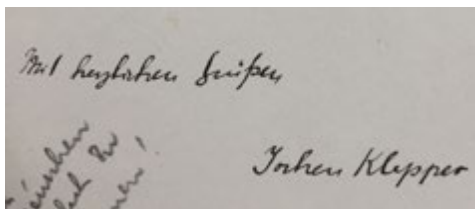 Mit herzlichen Grüßen
Jochen Klepper